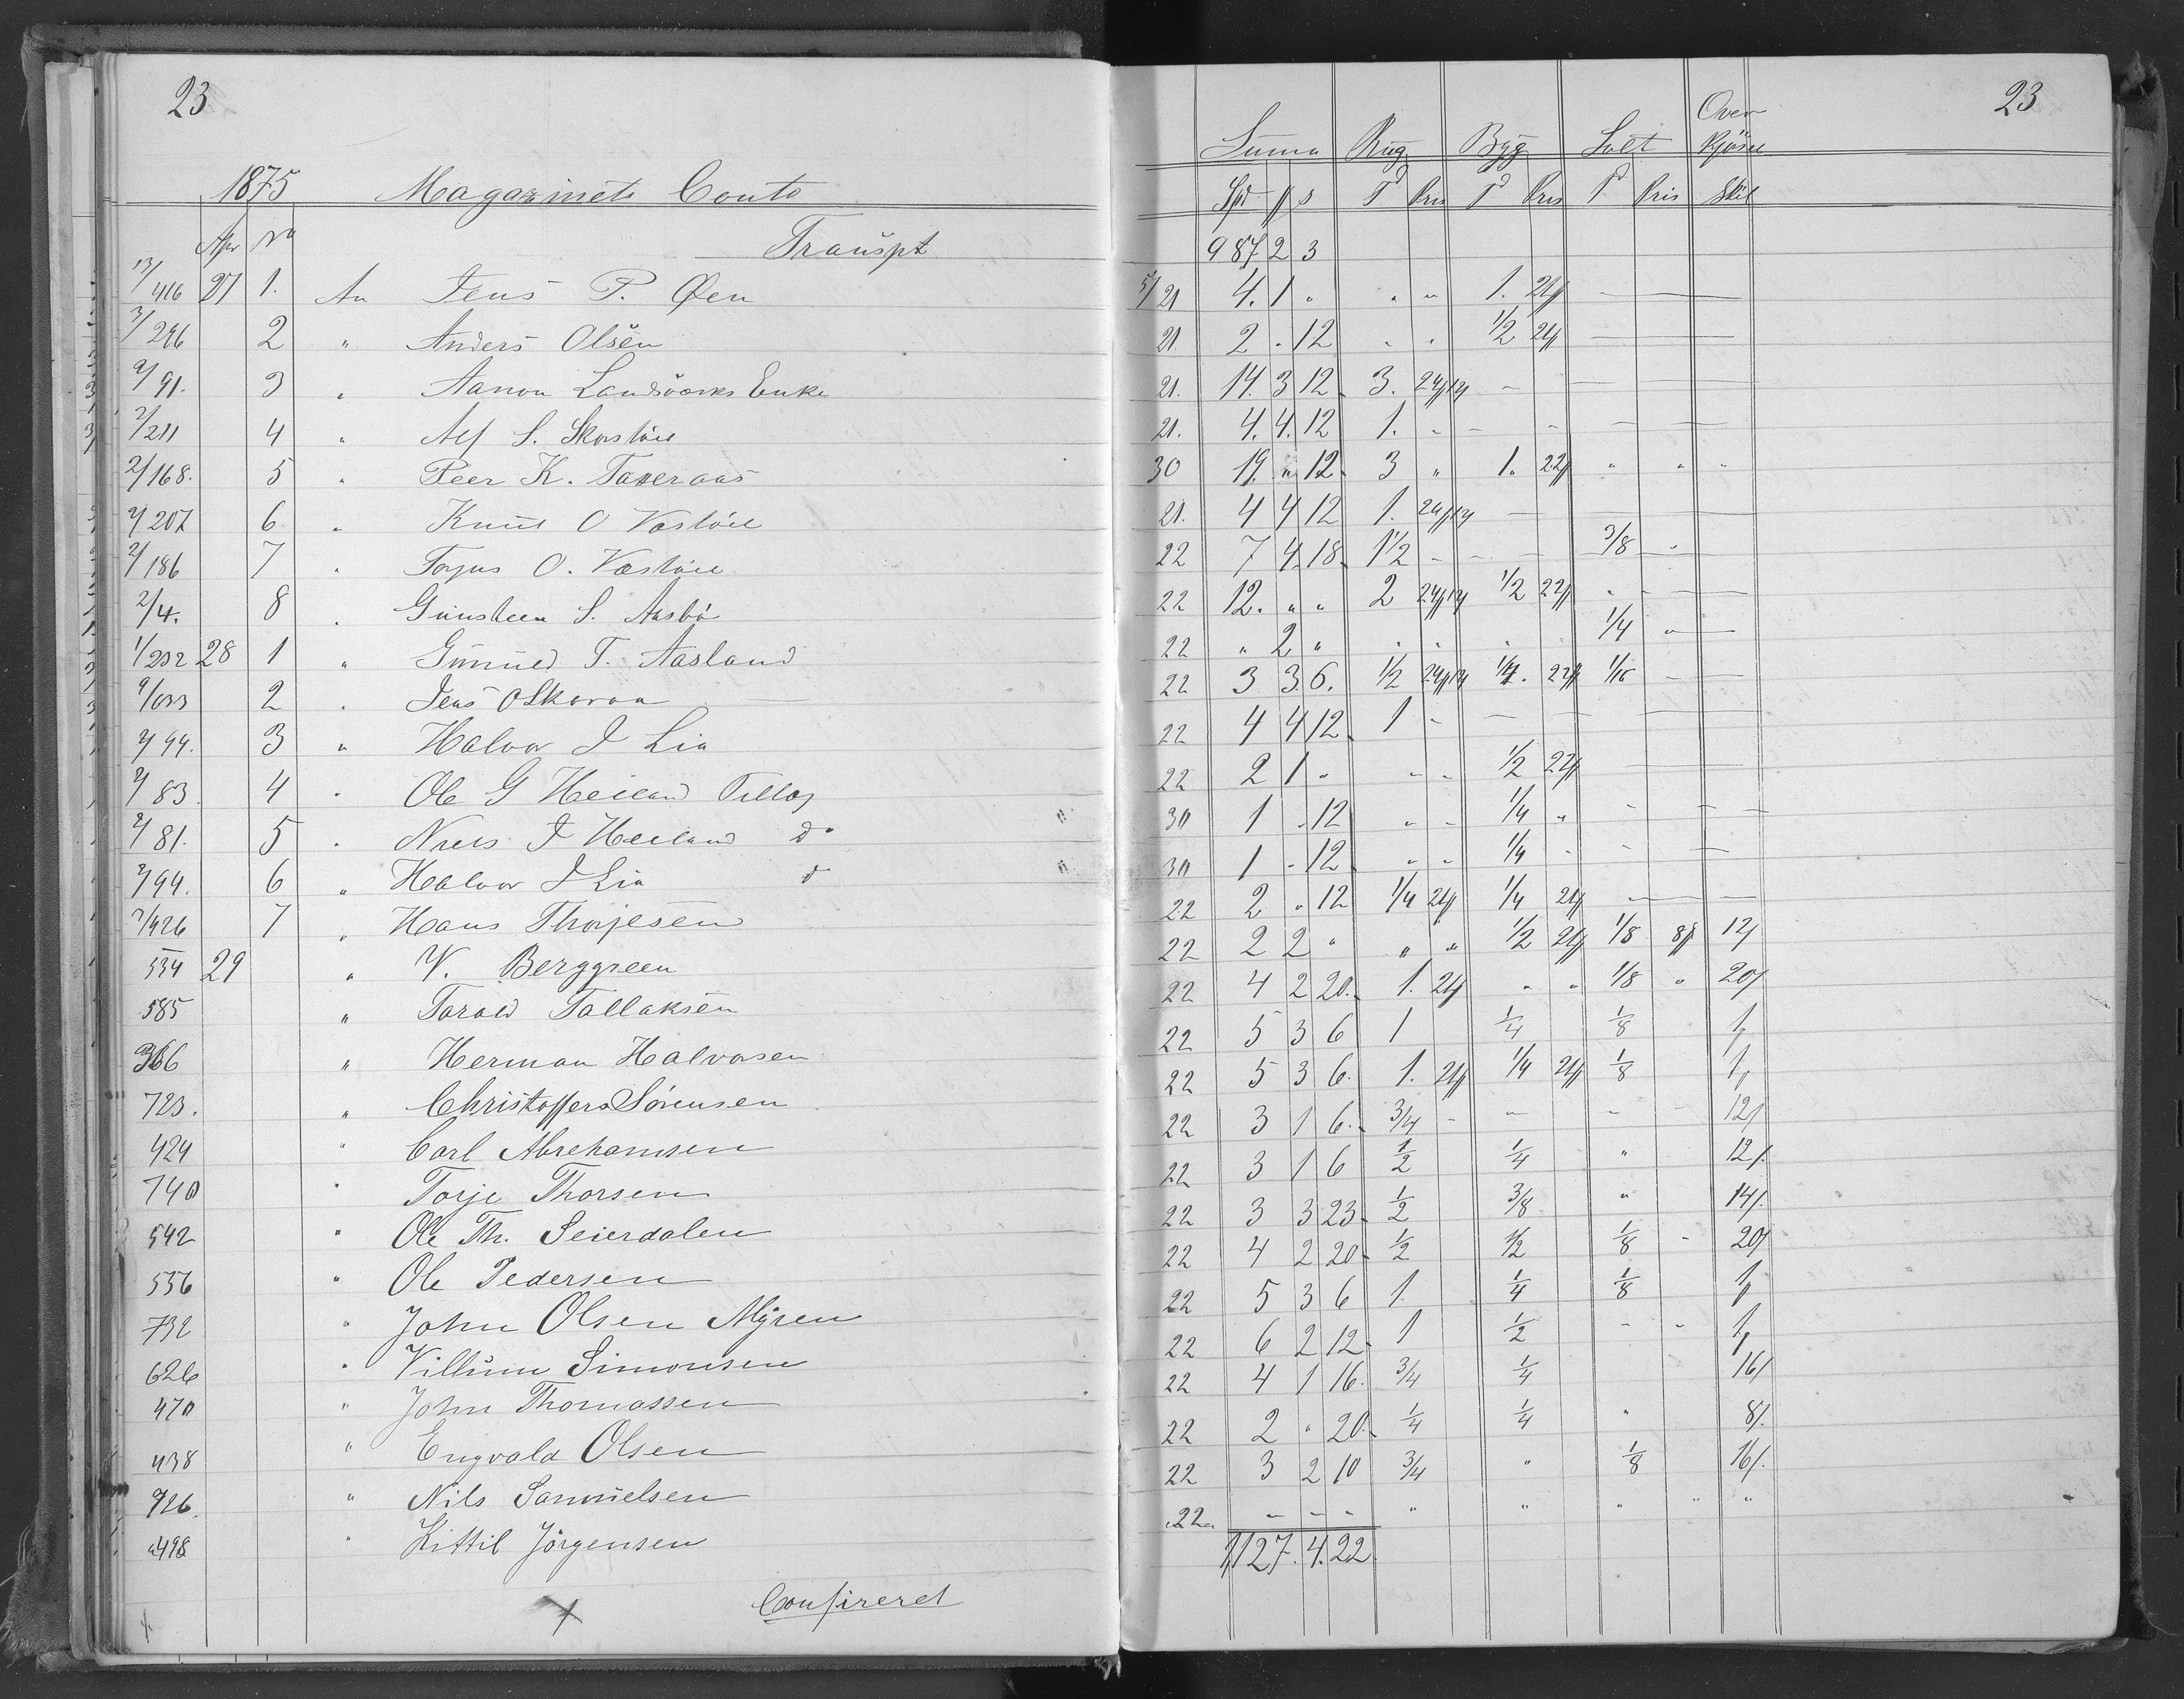 23
1875 Magazinets Conto
Apr No Transpt
13/416 27 1. An Jens P. Øen
3/296 2 " Anders Olsen
9/91. 3 " Aanon Landsværks Enke
2/211 4 " Alf S. Skorstøil
2/168. 5 " Peer K. Taxeraas
2/207 6 " Knut O Vestøil
2/186 7 " Torjus O. Vestøil
2/4. 8 " Gunsteen S. Aasbø
1/232 28 1 " Gunnild T. Aasland
2 " Jens O Skoraa
2/94. 3 " Halvor J Lia
2/83 4 " Ole G Heiland Tillæg
2/81. 5 " Niels J Heiland do
2/94. 6 " Halvor J Lia d
7/426 7 " Hans Thorjesen
534 29 " V. Berggreen
585 " Tarald Tallaksen
366 " Herman Halvorsen
723. " Christoffer Sörensen
424 " Carl Abrehamsen
740 " Torje Thorsen
542 " Ole Th. Seierdalen
556 " Ole Pedersen
732 " John Olsen Myren
626 " Villum Simonsen
470 " John Thomassen
438 " Engvald Olsen
726. " Nils Samuelsen
498 " Kittil Jörgensen
Confireret
23
Suma Rug Byg Salt Over kjøsel
Spd # s T Pris T Pris T Pris Skil
987 2 3
5/21 4. 1 " " " 1. 2# — —
21. 2 " 12 " " 1/2 2# — —
21. 14. 3 12 3. 24#12 — — —
21. 4. 4. 12 1. - - - — —
30 19. " 12. 3 " 1. 22# " " "
21. 4 4 12 1. 24#12 —
22 7 4 18. 1 1/2 - - — 3/8 "
22 12. " " 2 24#12 1/2 22# " - —
22 " 2 " " " " " 1/4 " —
22 3 3 6. 1/2 24#12 1/4. 22# 1/16 — —
22 4 4 12. 1 - — — — —
22 2 1 " " " 1/2 22# — —
30 1 " 12 " " 1/4 " - — —
30 1 " 12 " " 1/4 - - —
22 2 " 12 1/4 2# 1/4 2# — —
22 2 2 " " " 1/2 2# 1/8 8# 12/
22 4 2 20. 1. 2# " " 1/8 " 20/
22 5 3 6 1 1/4 1/8 1#
22 5 3 6. 1. 2# 1/4 2# 1/8 1#
22 3 1 6. 3/4 - - - - 12/
22 3 1 6 1/2 1/4 " 12/.
22 3 3 23. 1/2 3/8 " 14/.
22 4 2 20. 1/2 1/2 1/8 - 20/
22 5 3 6 1. 1/4 1/8 1#
22 6 2 12. 1 1/2 - - 1#
22 4 1 16. 3/4 1/4 16/
22 2 " 20. 1/4 1/4 " 8/.
22 3 2 10 3/4 " 1/8 16/.
22 - - - " " " " "
1127. 4. 22